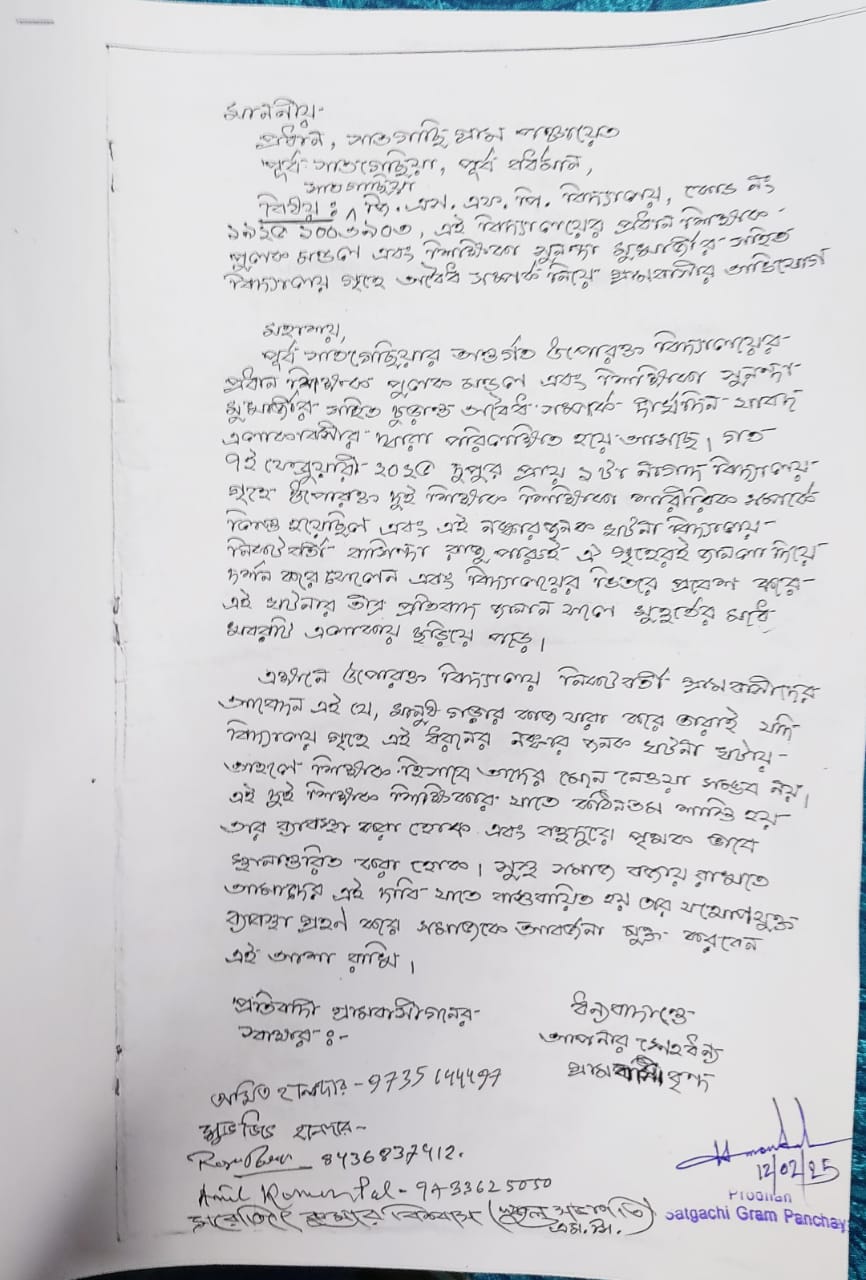 মাননীয়
প্রধান, সাতগাছি গ্রাম পঞ্চায়েত
পূর্ব সাতগেছিয়া, পূর্ব বর্ধমান,
সাতগাছিয়া
বিষয়ঃ জি. এস. এফ. পি. বিদ্যালয়, কোড নং
এই বিদ্যালয়ের প্রধান শিক্ষক
পুলক মণ্ডল এবং শিক্ষিকা সুনন্দা মুখার্জীর সহিত
বিদ্যালয় গৃহে অবৈধ সম্পর্ক নিয়ে গ্রামবাসীর অভিযোগ
মহাশয়,
পূর্ব সাতগেছিয়ার অন্তর্গত উপোরক্ত বিদ্যালয়ের
প্রধান শিক্ষক পুলক মণ্ডল এবং শিক্ষিকা সুনন্দা
মুখার্জীর সহিত চূড়ান্ত অবৈধ সম্পর্ক দীর্ঘদিন যাবদ
এলাকাবাসীর দ্বারা পরিলক্ষিত হয়ে আসছে। গত
৭ই ফেব্রুয়ারী ২০২৫ দুপুর প্রায় ১টা নাগাদ বিদ্যালয়
গৃহে উপোরক্ত দুই শিক্ষক শিক্ষিকা শারীরিক সম্পর্কে
লিপ্ত হয়েছিল এবং এই নক্কারজনক ঘটনা বিদ্যালয়
নিকটবর্তী বাসিন্দা রাজু পারুই ঐ গৃহেরই জানলা দিয়ে
দর্শন করে ফেলেন এবং বিদ্যালয়ের ভিতরে প্রবেশ করে
এই ঘটনার তীব্র প্রতিবাদ জানান ফলে মুহুর্তের মধ্যে
খবরটি এলাকায় ছড়িয়ে পড়ে।
এক্ষনে উপোরক্ত বিদ্যালয় নিকটবর্তী গ্রামবাসীদের
আবেদন এই যে, মানুষ গড়ার কাজ যারা করে তারাই যদি
বিদ্যালয় গৃহে এই ধরনের নক্কার জনক ঘটনা ঘটায়
তাহলে শিক্ষক হিসাবে তাদের মেনে নেওয়া সম্ভব নয়।
এই দুই শিক্ষক শিক্ষিকার যাতে কঠিনতম শাস্তি হয়
তার ব্যাবস্থা করা হোক এবং বহুদুরে পৃথক ভাবে
স্থানান্তরিত করা হোক। সুস্থ সমাজ বজায় রাখতে
আমাদের এই দাবি যাতে বাস্তবায়িত হয় তার যথোপযুক্ত
ব্যাবস্থা গ্রহণ করে সমাজকে আবর্জনা মুক্ত করবেন
এই আশা রাখি।
প্রতিবাদী গ্রামবাসীগনের
স্বাক্ষর ঃ-
ধন্যবাদান্তে
আপনার স্নেহধন্য
গ্রামবাসী বৃন্দ
অমিত হালদার - 9735144497
শুভজিত হালদার -
8436837412.
Amil Kumar Pal - 9733625050
কুমার বিশ্বাস
12/02/25
Prodhan
Satgachi Gram Panchay